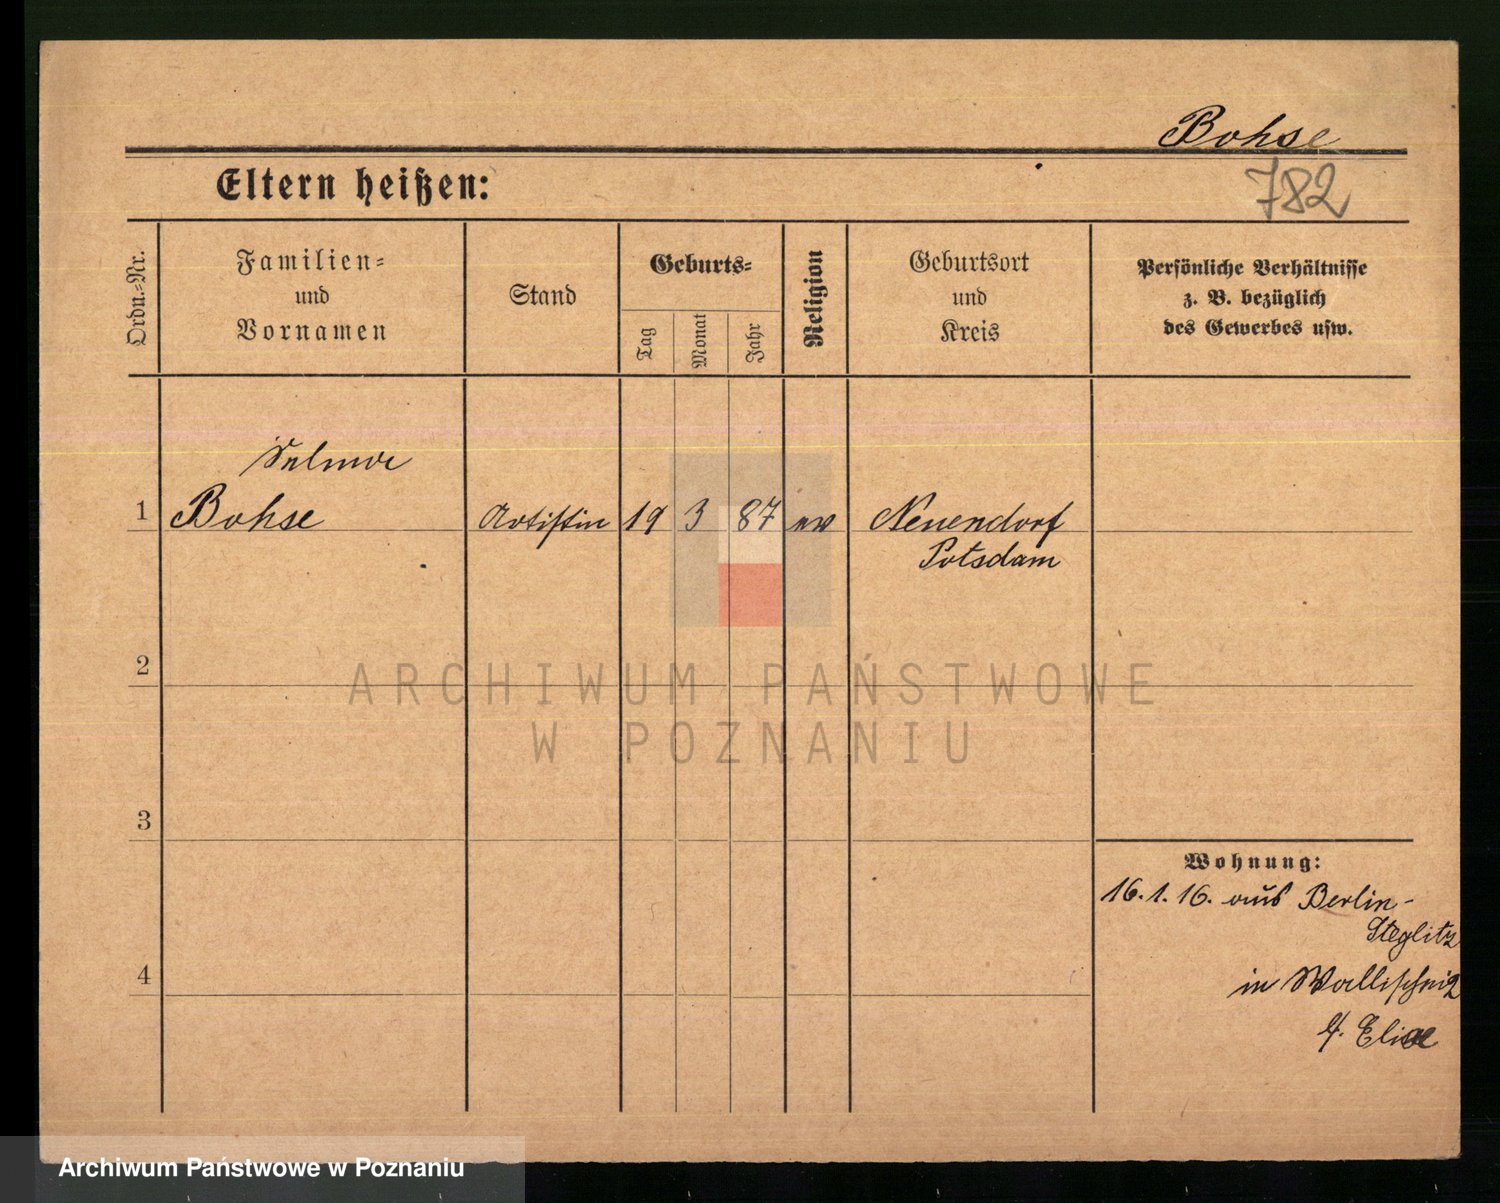 Bohse
Eltern heißen:
782
Ordn.-Nr.
Familien-
und
Vornamen
Stand
Geburts-
Tag
Monat
Jahr
Religion
Geburtsort
und
Kreis
Persönliche Verhältnisse
z. B. bezüglich
des Gewerbes usw.
Selma
1 Bohse Artistin 19 3 87 ev Neuendorf
Potsdam
2
ARCHIWUM PAŃSTWOWE
W POZNANIU
3
Wohnung:
16.1.16. aus Berlin-
Steglitz
4
in
Elise
Archiwum Państwowe w Poznaniu